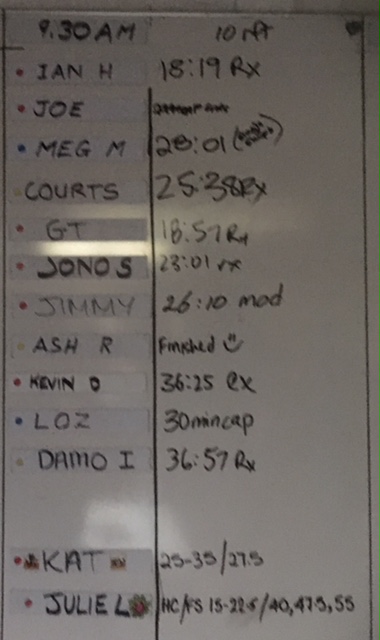 9.30AM 10 rft
IAN H 18:19 Rx
JOE
MEG M 28:01
COURTS 25:38 Rx
GT 18:57 Rx
JONO S 23:01 rx
JIMMY 26:10 mod
ASH R Finished
KEVIN D 36:25 Rx
LOZ 30mincap
DAMO I 36:57 Rx
KAT 25-35/27.5
JULIE L HC/FS 15-22.5/40,47.5,55